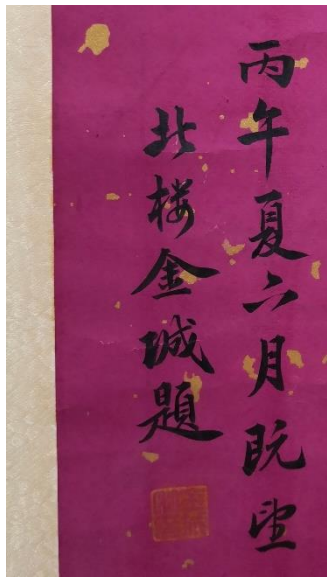 丙午夏六月既望
北楼金城題